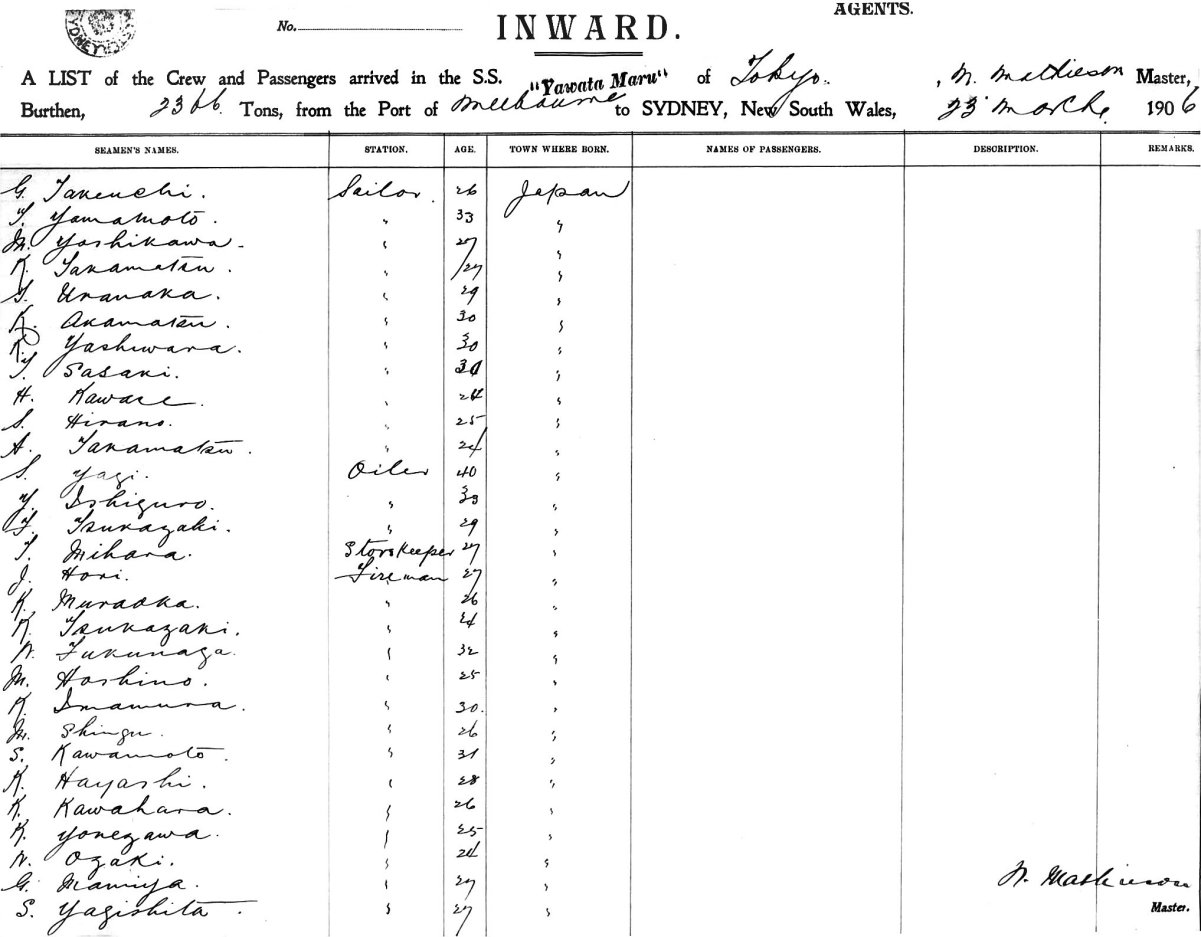 AGENTS.
SYDNEY
No. INWARD.
A LIST of the Crew and Passengers arrived in the S.S. "Yawata Maru" of Tokyo. , N. Mathieson Master,
Burthen, 2366 Tons, from the Port of Melbourne to SYDNEY, New South Wales, 23 March 1906
SEAMEN'S NAMES. STATION. AGE. TOWN WHERE BORN. NAMES OF PASSENGERS. DESCRIPTION. REMARKS.
G. Takeuchi. Sailor. 26 Japan
T. Yamamoto. " 33 "
M. Yoshikawa. " 27 "
K. Takamatsu. " 27 "
S. Uranaka. " 29 "
K. Akamatsu. " 30 "
K. Yoshiwara. " 30 "
T. Sasaki. " "
H. Kawase. " 24 "
S. Hirano. " 25 "
A. Takamatsu. " 24 "
S. Yagi. Oiler 40 "
Y. Ishiguro. " 33 "
T. Tsukazaki. " 29 "
T. Mihara. Storekeeper 27 "
J. Hori. Fireman 27 "
K. Muraoka. " 26 "
K. Tsukazaki. " 24 "
N. Fukunaga. " 32 "
M. Hoshino. " 25 "
K. Imamura. " 30. "
M. Shingu. " 26 "
S. Kawamoto. " 31 "
K. Hayashi. " 28 "
K. Kawahara. " 26 "
K. Yonezawa. " 25 "
N. Ozaki. " 24 "
G. Mamiya. " 27 "
N. Mathieson
S. Yagishita " 27 "
Master.